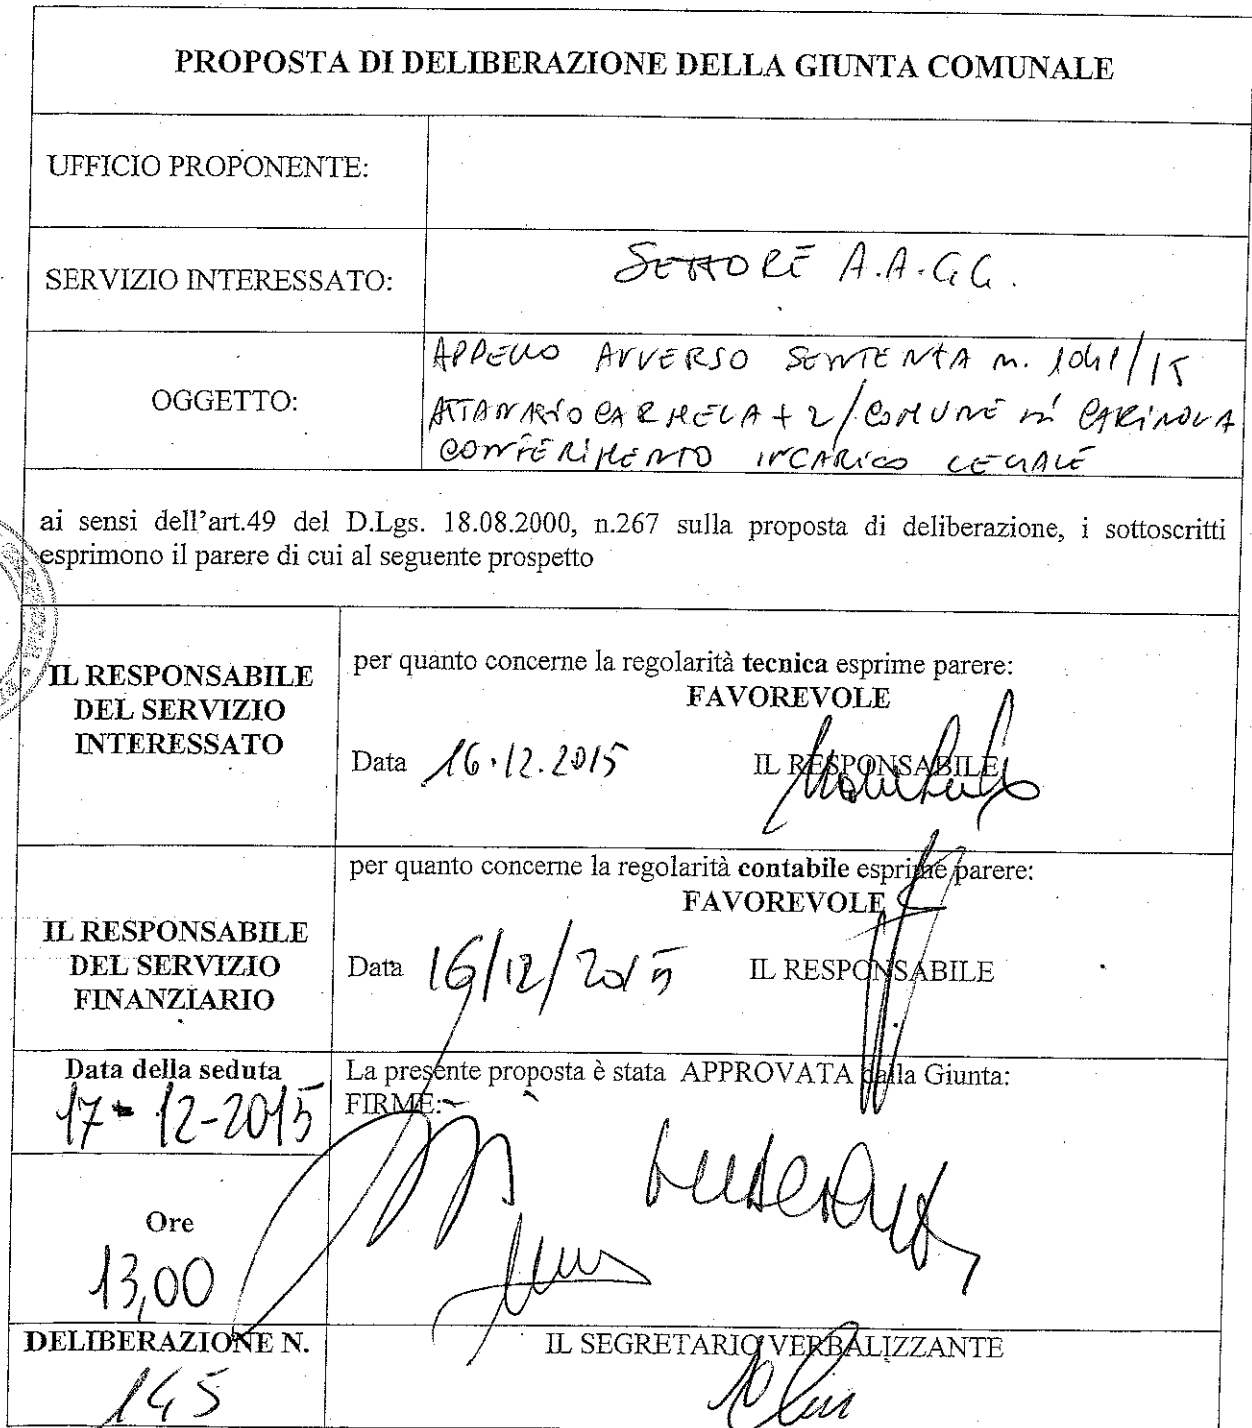 PROPOSTA DI DELIBERAZIONE DELLA GIUNTA COMUNALE
UFFICIO PROPONENTE:
SERVIZIO INTERESSATO:
SETTORE A.A.GG.
OGGETTO:
APPELLO AVVERSO SENTENZA n. 1041/15
ATTANASIO CARMELA + 2 / COMUNE di CARINOLA
CONFERIMENTO INCARICO LEGALE
ai sensi dell'art.49 del D.Lgs. 18.08.2000, n.267 sulla proposta di deliberazione, i sottoscritti
esprimono il parere di cui al seguente prospetto
IL RESPONSABILE
DEL SERVIZIO
INTERESSATO
per quanto concerne la regolarità tecnica esprime parere:
FAVOREVOLE
Data 16.12.2015 IL RESPONSABILE
IL RESPONSABILE
DEL SERVIZIO
FINANZIARIO
per quanto concerne la regolarità contabile esprime parere:
FAVOREVOLE
Data 16/12/2015 IL RESPONSABILE
Data della seduta
17-12-2015
La presente proposta è stata APPROVATA dalla Giunta:
FIRME:
Ore
13,00
DELIBERAZIONE N.
145
IL SEGRETARIO VERBALIZZANTE